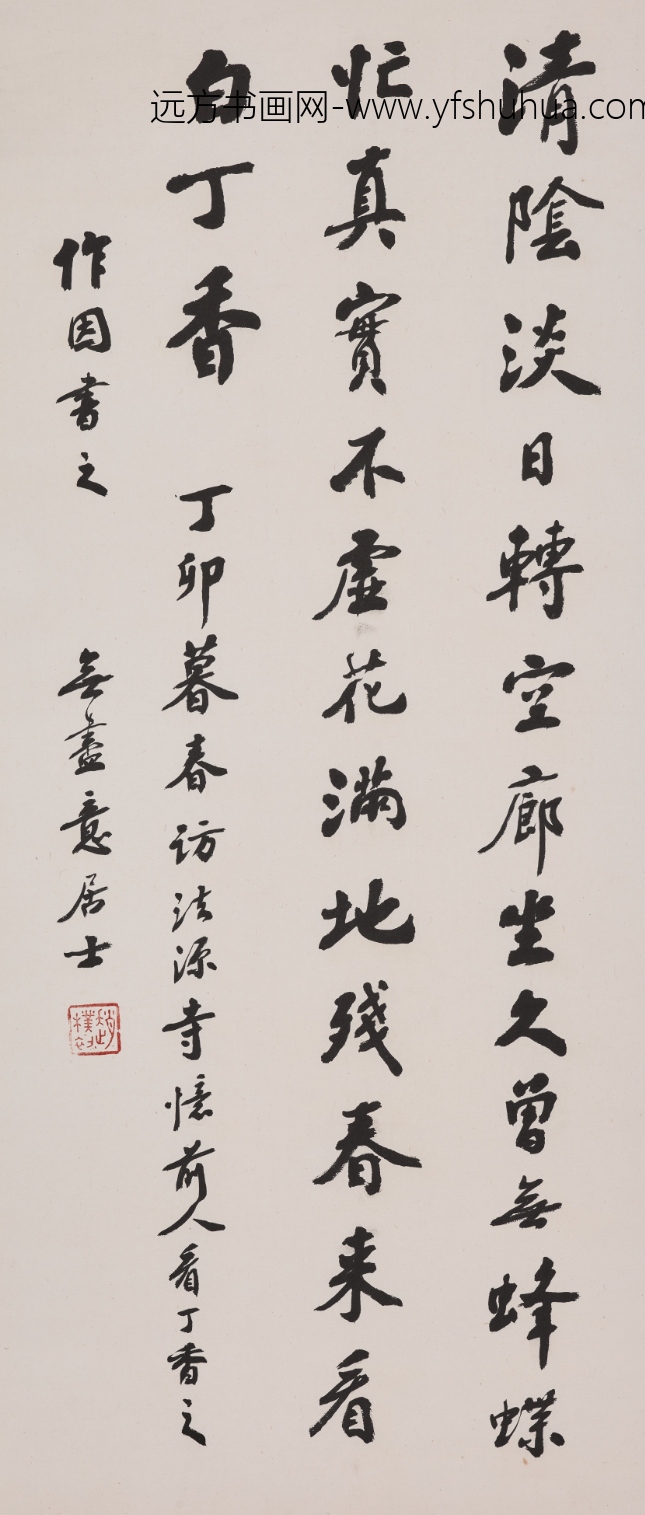 清陰淡日轉空廊坐久曾無蜂蝶
忙真實不虛花滿地殘春来看
白丁香 丁卯暮春访法源寺憶前人看丁香之
作因書之 無盡意居士
趙樸初
远方书画网-www.yfshuhua.com